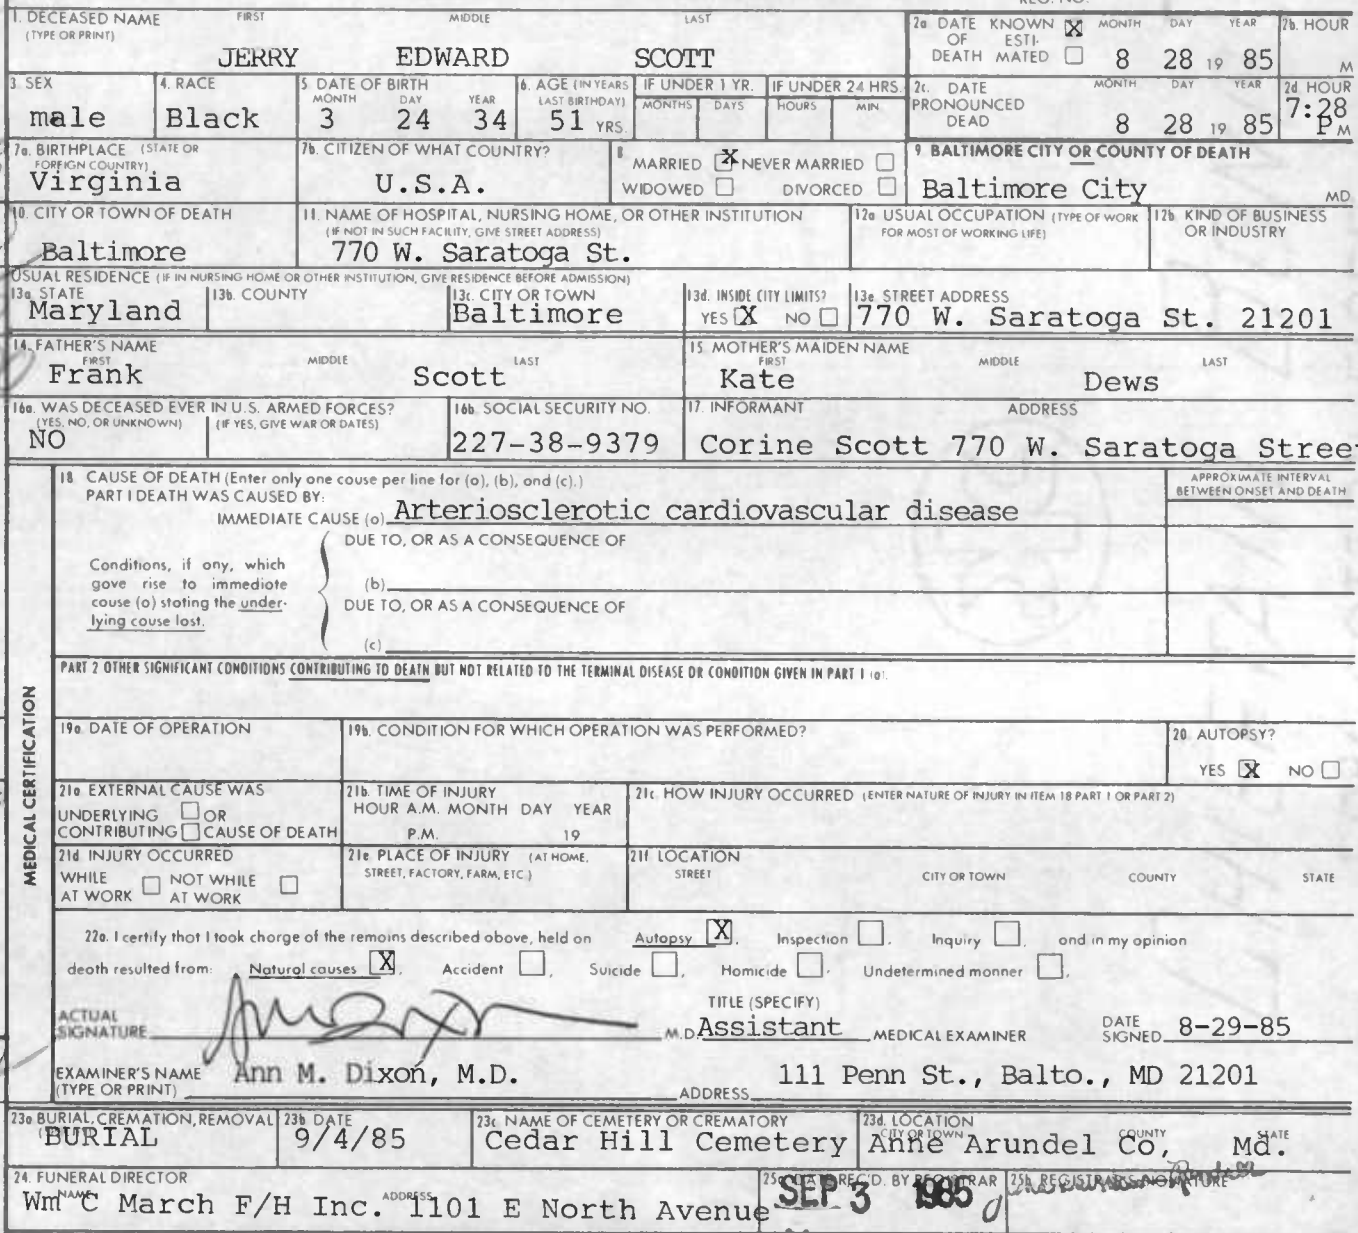 REG. NO.
1. DECEASED NAME FIRST MIDDLE LAST
(TYPE OR PRINT)
JERRY EDWARD SCOTT
2a DATE KNOWN X MONTH DAY YEAR 2b. HOUR
OF ESTI-
DEATH MATED 8 28 19 85 M
3 SEX male
4. RACE Black
5 DATE OF BIRTH
MONTH DAY YEAR
3 24 34
6. AGE (IN YEARS LAST BIRTHDAY)
51 YRS.
IF UNDER 1 YR. IF UNDER 24 HRS.
MONTHS DAYS HOURS MIN
2c. DATE MONTH DAY YEAR 2d HOUR
PRONOUNCED
DEAD 8 28 19 85 7:28 P M
7a. BIRTHPLACE (STATE OR FOREIGN COUNTRY)
Virginia
7b. CITIZEN OF WHAT COUNTRY?
U.S.A.
8 MARRIED X NEVER MARRIED
WIDOWED DIVORCED
9. BALTIMORE CITY OR COUNTY OF DEATH
Baltimore City MD.
10. CITY OR TOWN OF DEATH
Baltimore
11. NAME OF HOSPITAL, NURSING HOME, OR OTHER INSTITUTION
(IF NOT IN SUCH FACILITY, GIVE STREET ADDRESS)
770 W. Saratoga St.
12a USUAL OCCUPATION (TYPE OF WORK
FOR MOST OF WORKING LIFE)
12b. KIND OF BUSINESS
OR INDUSTRY
USUAL RESIDENCE (IF IN NURSING HOME OR OTHER INSTITUTION, GIVE RESIDENCE BEFORE ADMISSION)
13a. STATE Maryland
13b. COUNTY
13c. CITY OR TOWN
Baltimore
13d. INSIDE CITY LIMITS?
YES X NO
13e STREET ADDRESS
770 W. Saratoga St. 21201
14. FATHER'S NAME
FIRST MIDDLE LAST
Frank Scott
15 MOTHER'S MAIDEN NAME
FIRST MIDDLE LAST
Kate Dews
16a. WAS DECEASED EVER IN U.S. ARMED FORCES?
(YES, NO, OR UNKNOWN) (IF YES, GIVE WAR OR DATES)
NO
16b. SOCIAL SECURITY NO.
227-38-9379
17. INFORMANT ADDRESS
Corine Scott 770 W. Saratoga Stree
18 CAUSE OF DEATH (Enter only one cause per line for (a), (b), and (c).)
PART I DEATH WAS CAUSED BY:
APPROXIMATE INTERVAL
BETWEEN ONSET AND DEATH
IMMEDIATE CAUSE (a) Arteriosclerotic cardiovascular disease
DUE TO, OR AS A CONSEQUENCE OF
Conditions, if any, which
gave rise to immediate
cause (a) stating the under-
lying cause last.
(b)
DUE TO, OR AS A CONSEQUENCE OF
(c)
PART 2 OTHER SIGNIFICANT CONDITIONS CONTRIBUTING TO DEATH BUT NOT RELATED TO THE TERMINAL DISEASE OR CONDITION GIVEN IN PART 1 (a).
MEDICAL CERTIFICATION
19a. DATE OF OPERATION
19b. CONDITION FOR WHICH OPERATION WAS PERFORMED?
20. AUTOPSY?
YES X NO
21a EXTERNAL CAUSE WAS
UNDERLYING OR
CONTRIBUTING CAUSE OF DEATH
21b. TIME OF INJURY
HOUR A.M. MONTH DAY YEAR
P.M. 19
21c. HOW INJURY OCCURRED (ENTER NATURE OF INJURY IN ITEM 18 PART 1 OR PART 2)
21d INJURY OCCURRED
WHILE NOT WHILE
AT WORK AT WORK
21e PLACE OF INJURY (AT HOME,
STREET, FACTORY, FARM, ETC.)
21f LOCATION
STREET CITY OR TOWN COUNTY STATE
22a. I certify that I took charge of the remains described above, held on Autopsy X, Inspection, Inquiry, and in my opinion
death resulted from: Natural causes X, Accident, Suicide, Homicide, Undetermined manner.
ACTUAL
SIGNATURE M.D.
TITLE (SPECIFY)
Assistant MEDICAL EXAMINER
DATE
SIGNED 8-29-85
EXAMINER'S NAME
(TYPE OR PRINT) Ann M. Dixon, M.D.
ADDRESS 111 Penn St., Balto., MD 21201
23a BURIAL, CREMATION, REMOVAL
BURIAL
23b DATE
9/4/85
23c NAME OF CEMETERY OR CREMATORY
Cedar Hill Cemetery
23d. LOCATION
CITY OR TOWN COUNTY STATE
Anne Arundel Co, Md.
24. FUNERAL DIRECTOR
NAME ADDRESS
Wm C March F/H Inc. 1101 E North Avenue
25a. DATE REC'D. BY REGISTRAR
SEP 3 1985
25b. REGISTRAR'S SIGNATURE